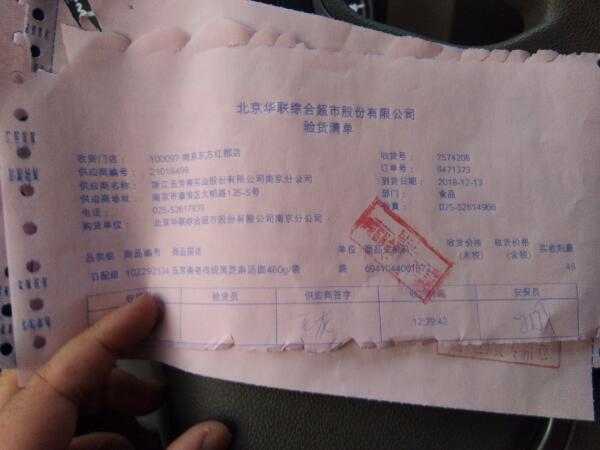 北京华联综合超市股份有限公司
验货清单
收货门店： 100097 南京东方红郡店 收货号： 7574206
供应商编号： 21018498 订单号： 9471373
供应商名称： 浙江五芳斋实业股份有限公司南京分公司 到货日期： 2018-12-13
供应商地址： 南京市秦淮区大明路135-5号 部门： 食品
电话： 025-52617939 传真： 025-52614966
购货单位： 北京华联综合超市股份有限公司南京分公司
品类组 商品编号 商品描述 单位 商品主 收货价格(未税) 收货价格(含税) 实收数量
日配组 102292534 五芳斋老传统黑芝麻汤圆460g/袋 袋 48
验货员 供应商签字 安保员
12:39:42